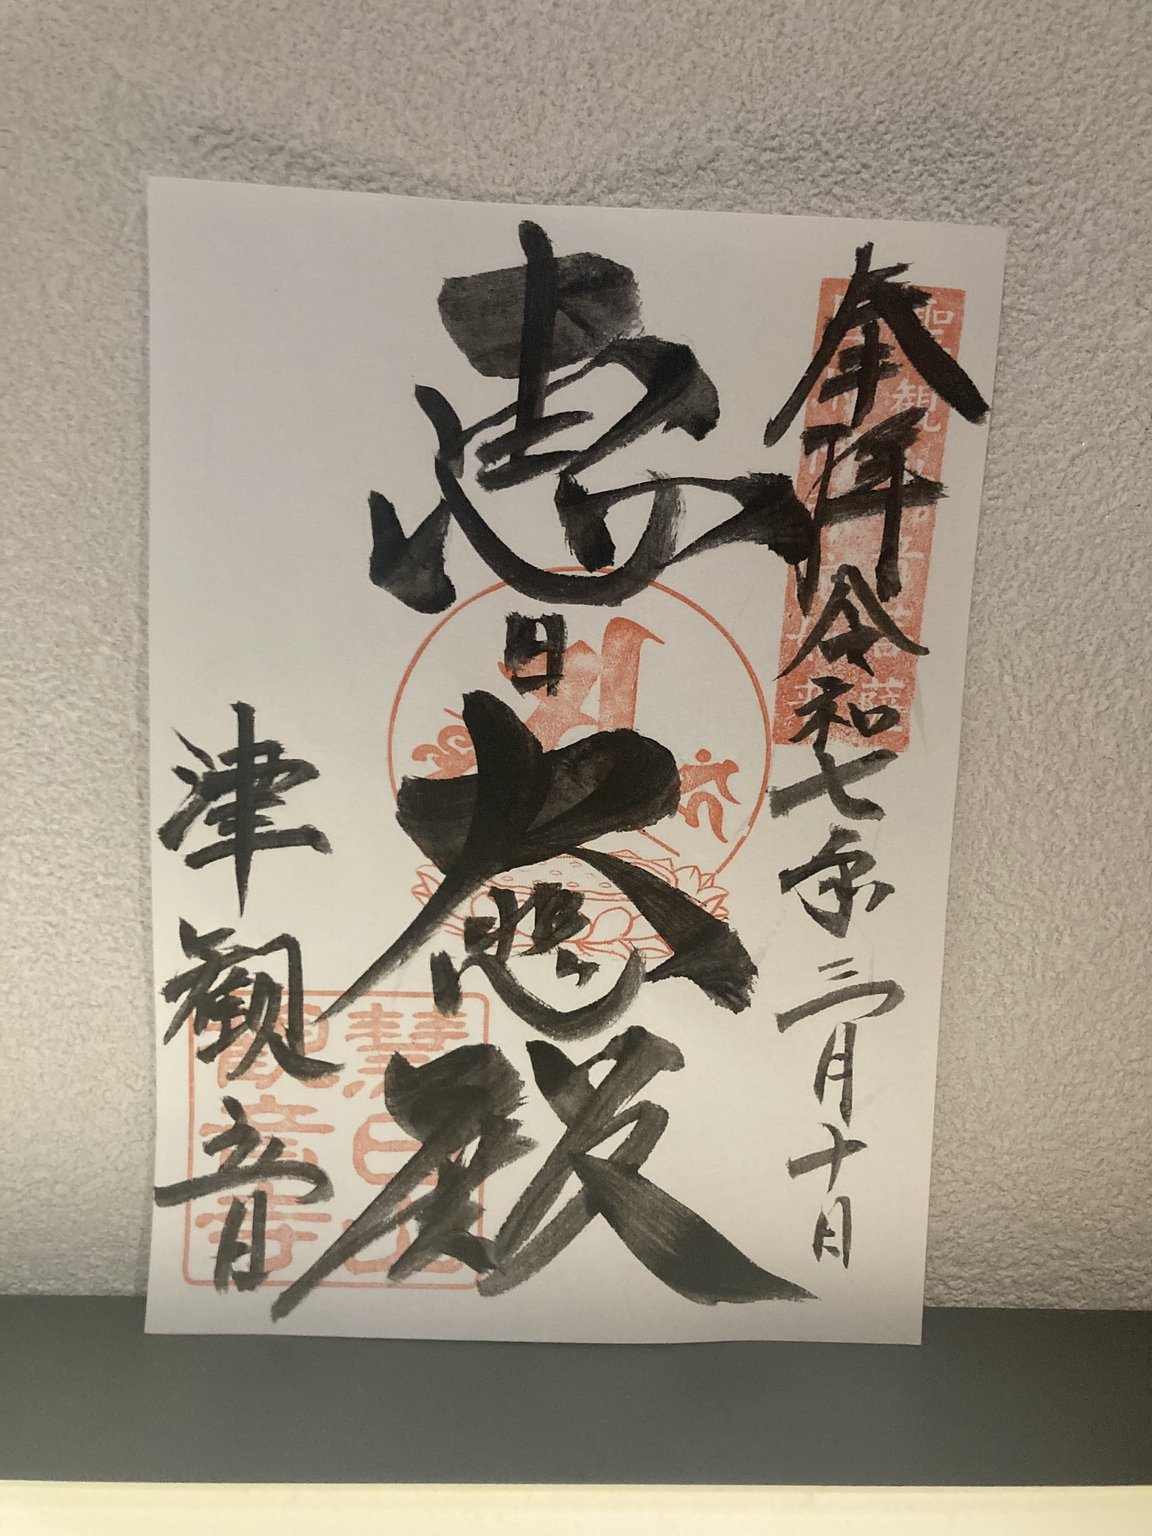 奉拝 令和七年三月十日
恵日大悲殿
津観音
聖観世音菩薩
慧日山
観音寺